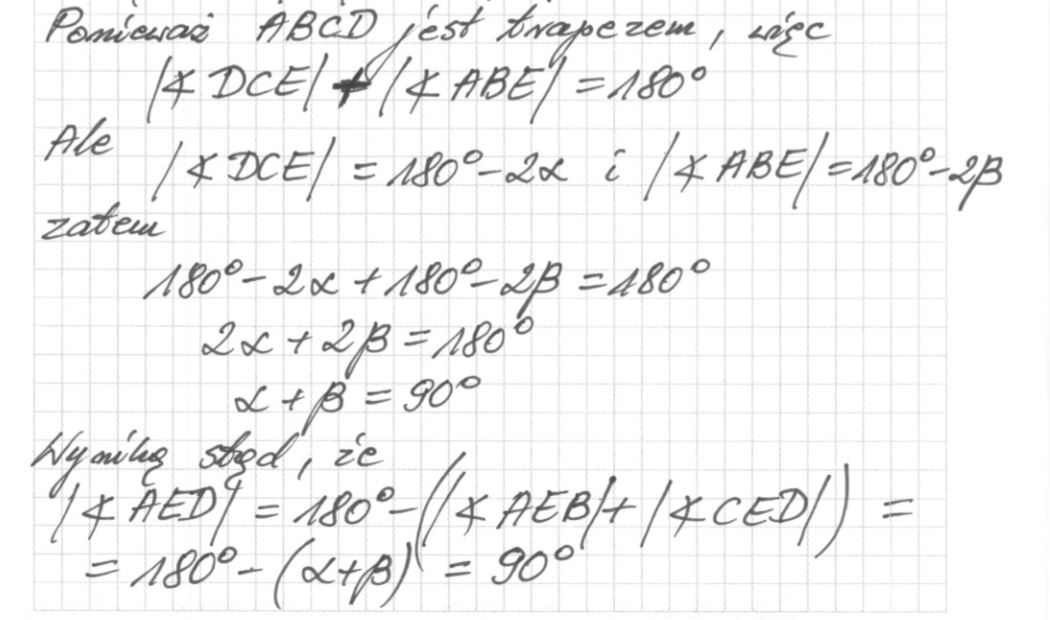 Ponieważ ABCD jest trapezem, więc
|∢DCE| + |∢ABE| = 180°
Ale |∢DCE| = 180° - 2α i |∢ABE| = 180° - 2β
zatem
180° - 2α + 180° - 2β = 180°
2α + 2β = 180°
α + β = 90°
Wynika stąd, że
|∢AED| = 180° - (|∢AEB| + |∢CED|) =
= 180° - (α+β) = 90°